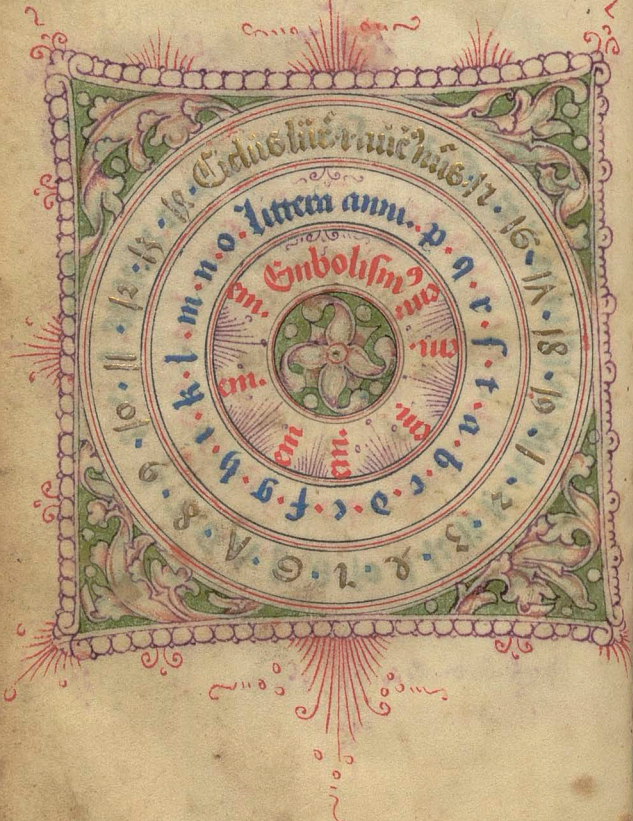 Ciclus 15 · 16 · 17 · 18 · 19 · 1 · 2 · 3 · 4 · 5 · 6 · 7 · 8 · 9 · 10 · 11 · 12 · 13 · 14 ·
littera anni · p · q · r · s · t · a · b · c · d · e · f · g · h · i · k · l · m · n · o ·
Enbolismꝰ em em em em em em em